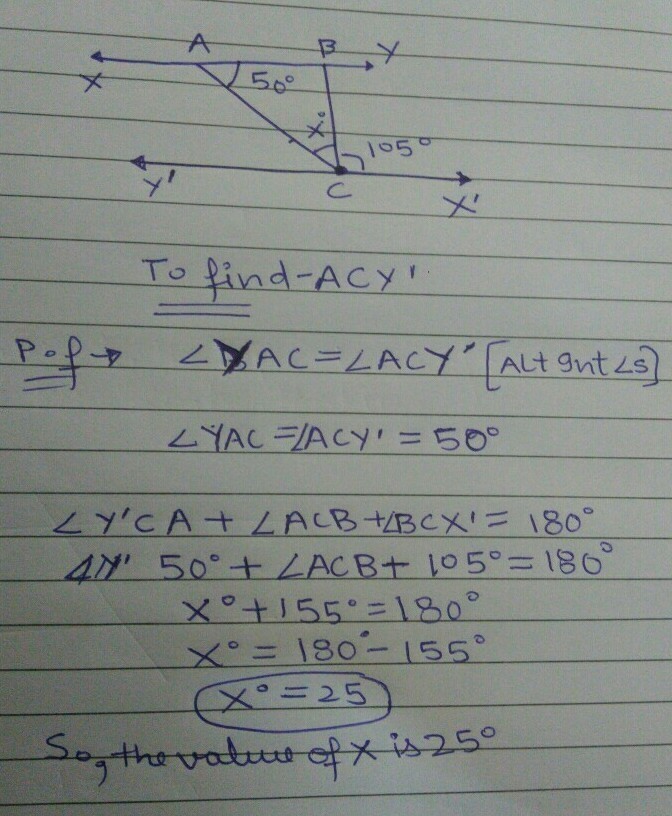 A B Y
X 50°
x° 105°
Y' C X'
To find-ACY'
P.o.f → ∠YAC=∠ACY' [ALt gnt ∠s]
∠YAC=∠ACY'=50°
∠Y'CA+∠ACB+∠BCX'=180°
50°+∠ACB+105°=180°
x°+155°=180°
x°=180°-155°
x°=25
So, the value of x is 25°